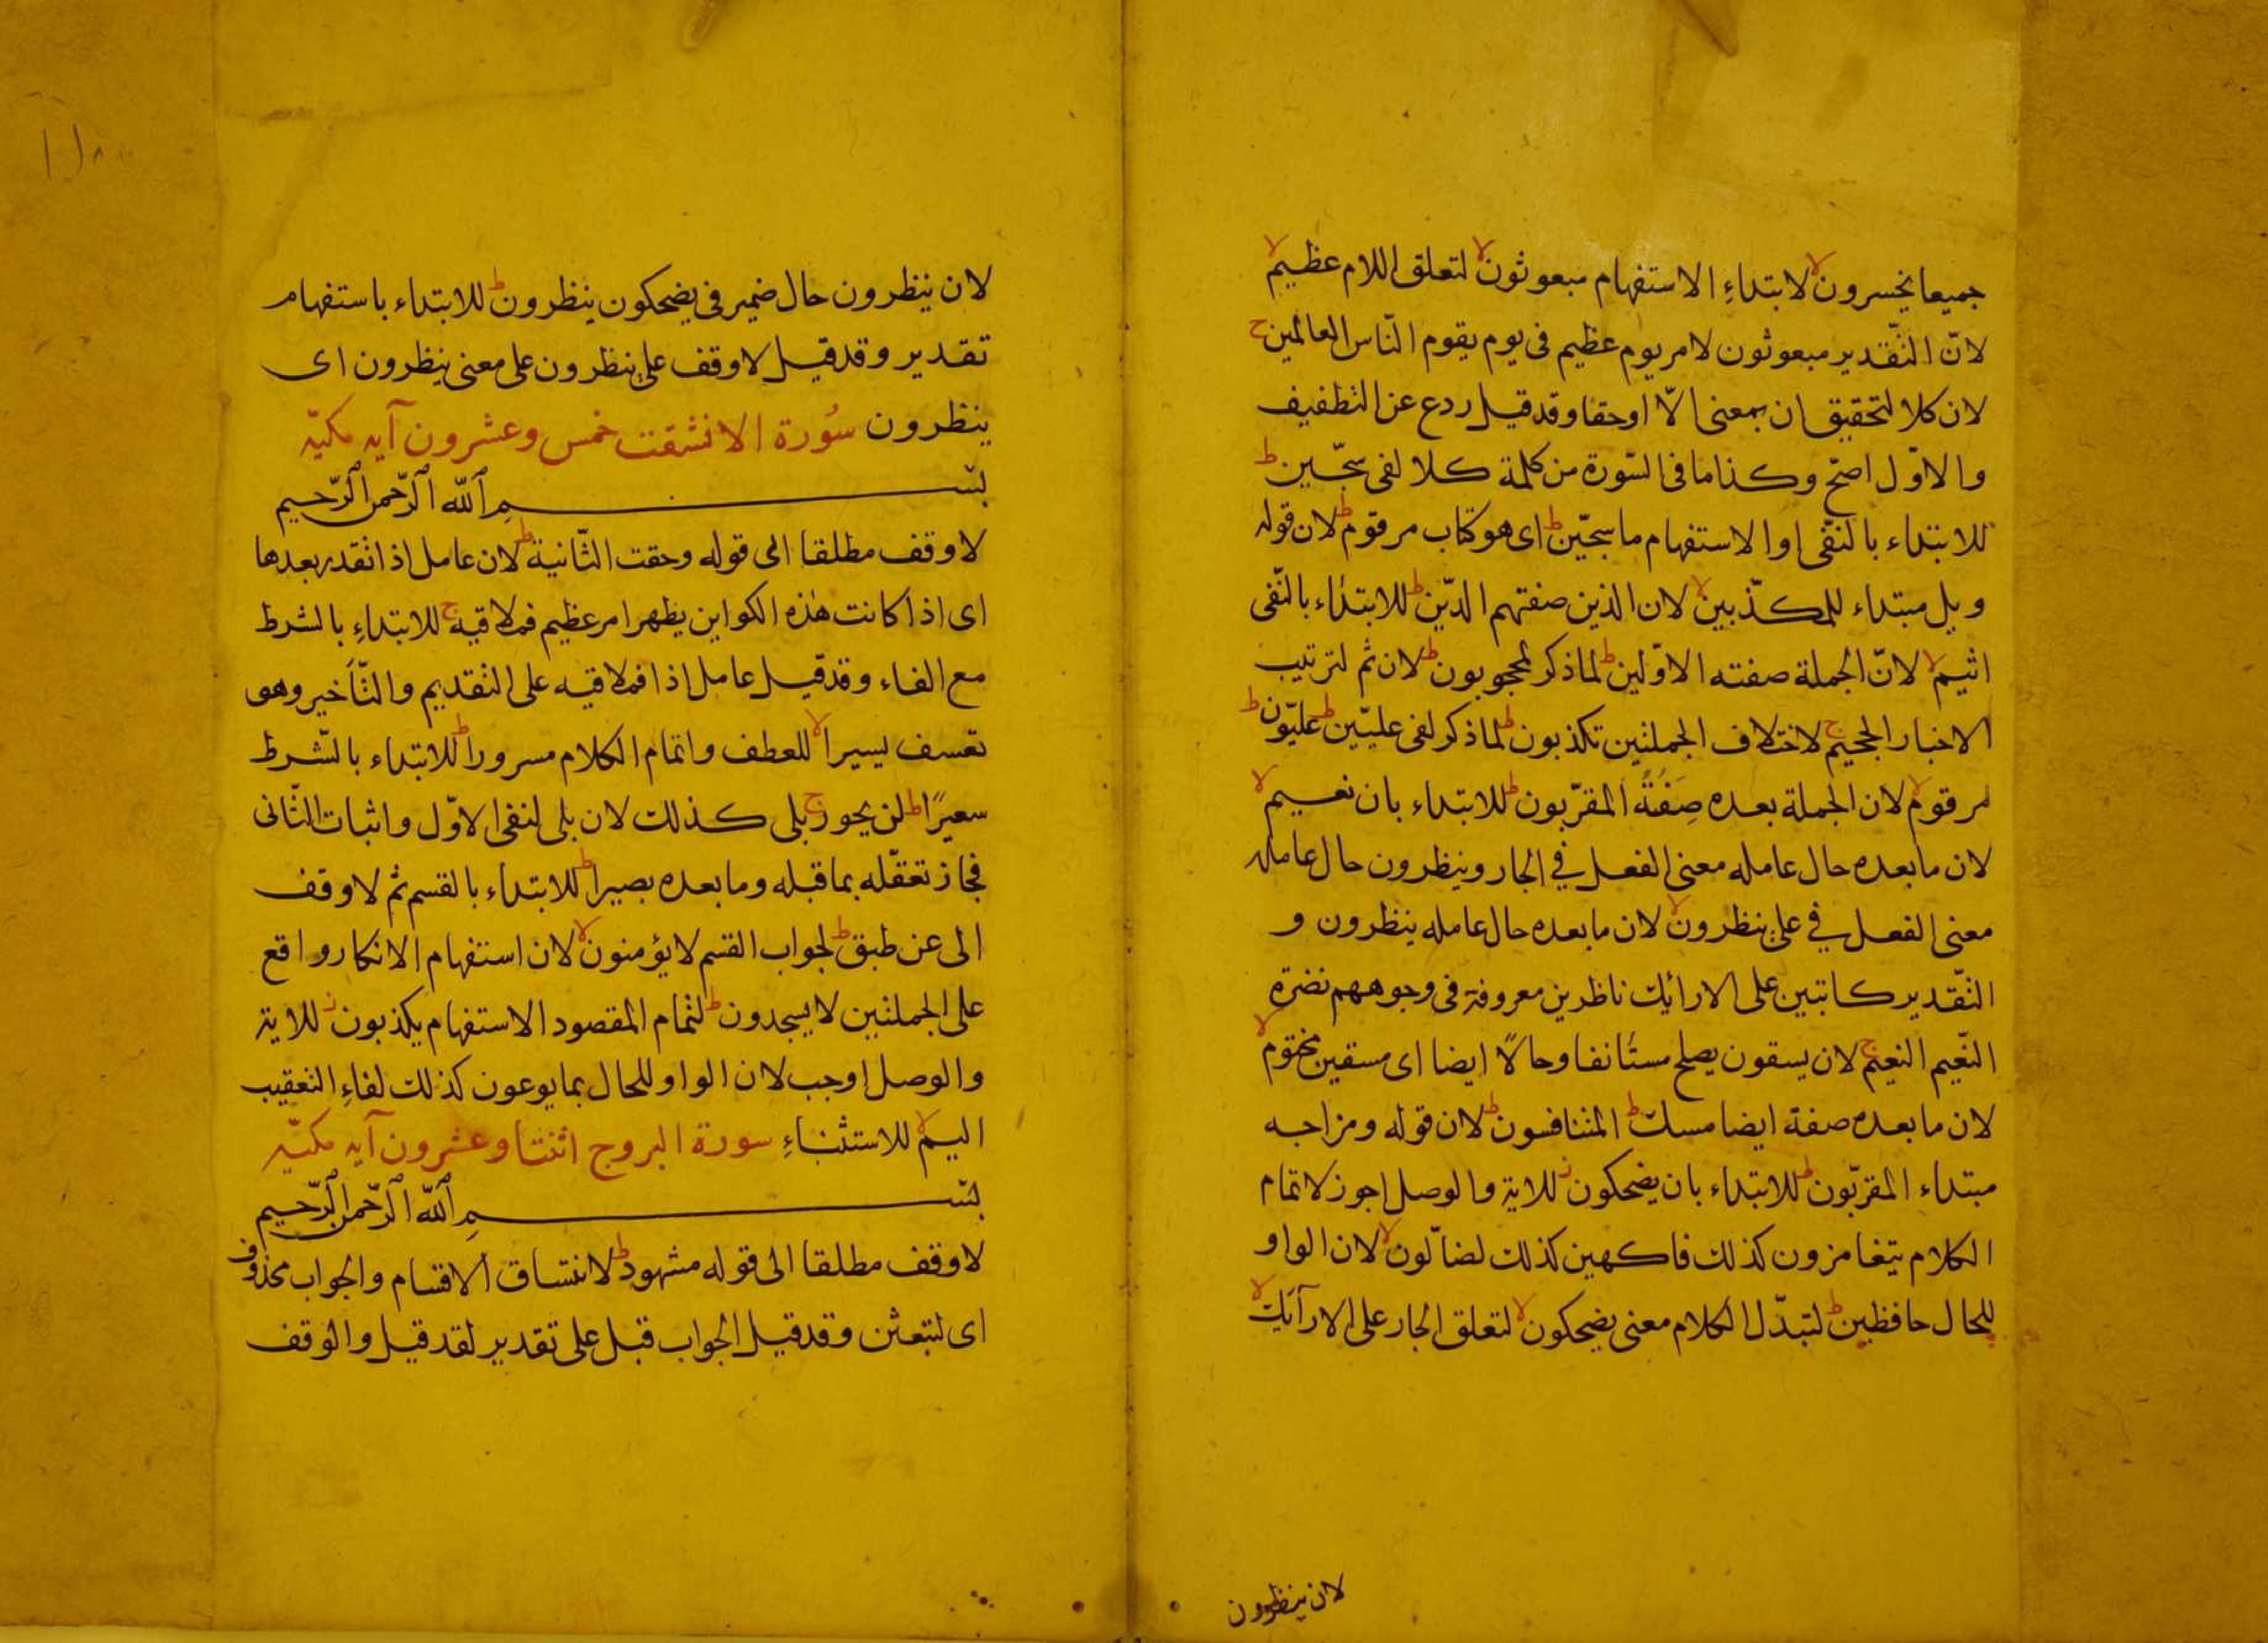 جميعا يخسرون لا لابتداءِ الاستفهام مبعوثون لا لتعلق اللام عظيم لا
لانّ التّقدير مبعوثون لامر يوم عظيم فى يوم يقوم النّاس العالمين ج
لان كلا لتحقيق ان بمعنى الّا اوحقا وقد قيل ردع عن التطفيف
والاوّل اصحّ وكذا ما فى السّورة من كلمة كلا لفى سجّين ط
للابتداء بالنّفى او الاستفهام ما سجّين ط اى هو كتاب مرقوم ط لان قوله
ويل مبتداء للمكذّبين لا لان الذين صفتهم الدّين ط للابتداء بالنّفى
اثيم لا لانّ الجملة صفته الاوّلين ط لما ذكر لمحجوبون ط لان ثم لترتيب
الاخبار الجحيم ج لاختلاف الجملتين تكذبون ط لما ذكر لفى عليّين ط عليّون ط
مرقوم لا لان الجملة بعده صِفَةٌ المقرّبون ط للابتداء بان نعيم لا
لان ما بعده حال عامله معنى الفعل في الجار وينظرون حال عامله
معنى الفعل في على ينظرون لا لان ما بعده حال عامله ينظرون و
التّقدير كائنين على الارائك ناظرين معروفة فى وجوههم نضرة
النّعيم النعيم ج لان يسقون يصلح مستأنفا وحالًا ايضا اى مسقين مختوم لا
لان ما بعده صفة ايضا مسك ط المتنافسون ط لان قوله ومزاجه
مبتداء المقرّبون ط للابتداء بان يضحكون ز للاية والوصل اجوز لاتمام
الكلام يتغامزون كذلك فاكهين كذلك لضالّون لا لان الواو
للحال حافظين ط لتبدّل الكلام معنى يضحكون لا لتعلق الجار على الارآئك لا
لان ينظرون
لان ينظرون حال ضمير فى يضحكون ينظرون ط للابتداء باستفهام
تقدير وقد قيل لا وقف على ينظرون على معنى ينظرون اى
ينظرون سُورة الانشقت خمس وعشرون آيه مكيّه
بسم الله الرّحمن الرّحيم
لا وقف مطلقا الى قوله وحقت الثّانية ط لان عامل اذا تقدر بعدها
اى اذا كانت هٰذه الكواين يظهر امر عظيم فملاقيه ج للابتداءِ بالشرط
مع الفاء وقد قيل عامل اذا فملاقيه على التقديم والتّأخير وهو
تعسف يسيرا لا للعطف واتمام الكلام مسرورا ط للابتداء بالشّرط
سعيرًا ط لن يحور ج بلى كذلك لان بلى لنفى الاوّل واثبات الثّانى
فجاز تعقّله بما قبله وما بعده بصيرا ط للابتداء بالقسم ثم لا وقف
الى عن طبق ط لجواب القسم لا يؤمنون لا لان استفهام الانكار واقع
على الجملتين لا يسجدون ط لتمام المقصود الاستفهام يكذبون ز للاية
والوصل اوجب لان الواو للحال بما يوعون كذلك لفاءِ التعقيب
اليم لا للاستثناءِ سورة البروج اثنتا وعشرون آيه مكيّه
بسم الله الرّحمن الرّحيم
لا وقف مطلقا الى قوله مشهود ط لاتساق الاقسام والجواب محذوف
اى لتبعثن وقد قيل الجواب قبل على تقدير لقد قيل والوقف